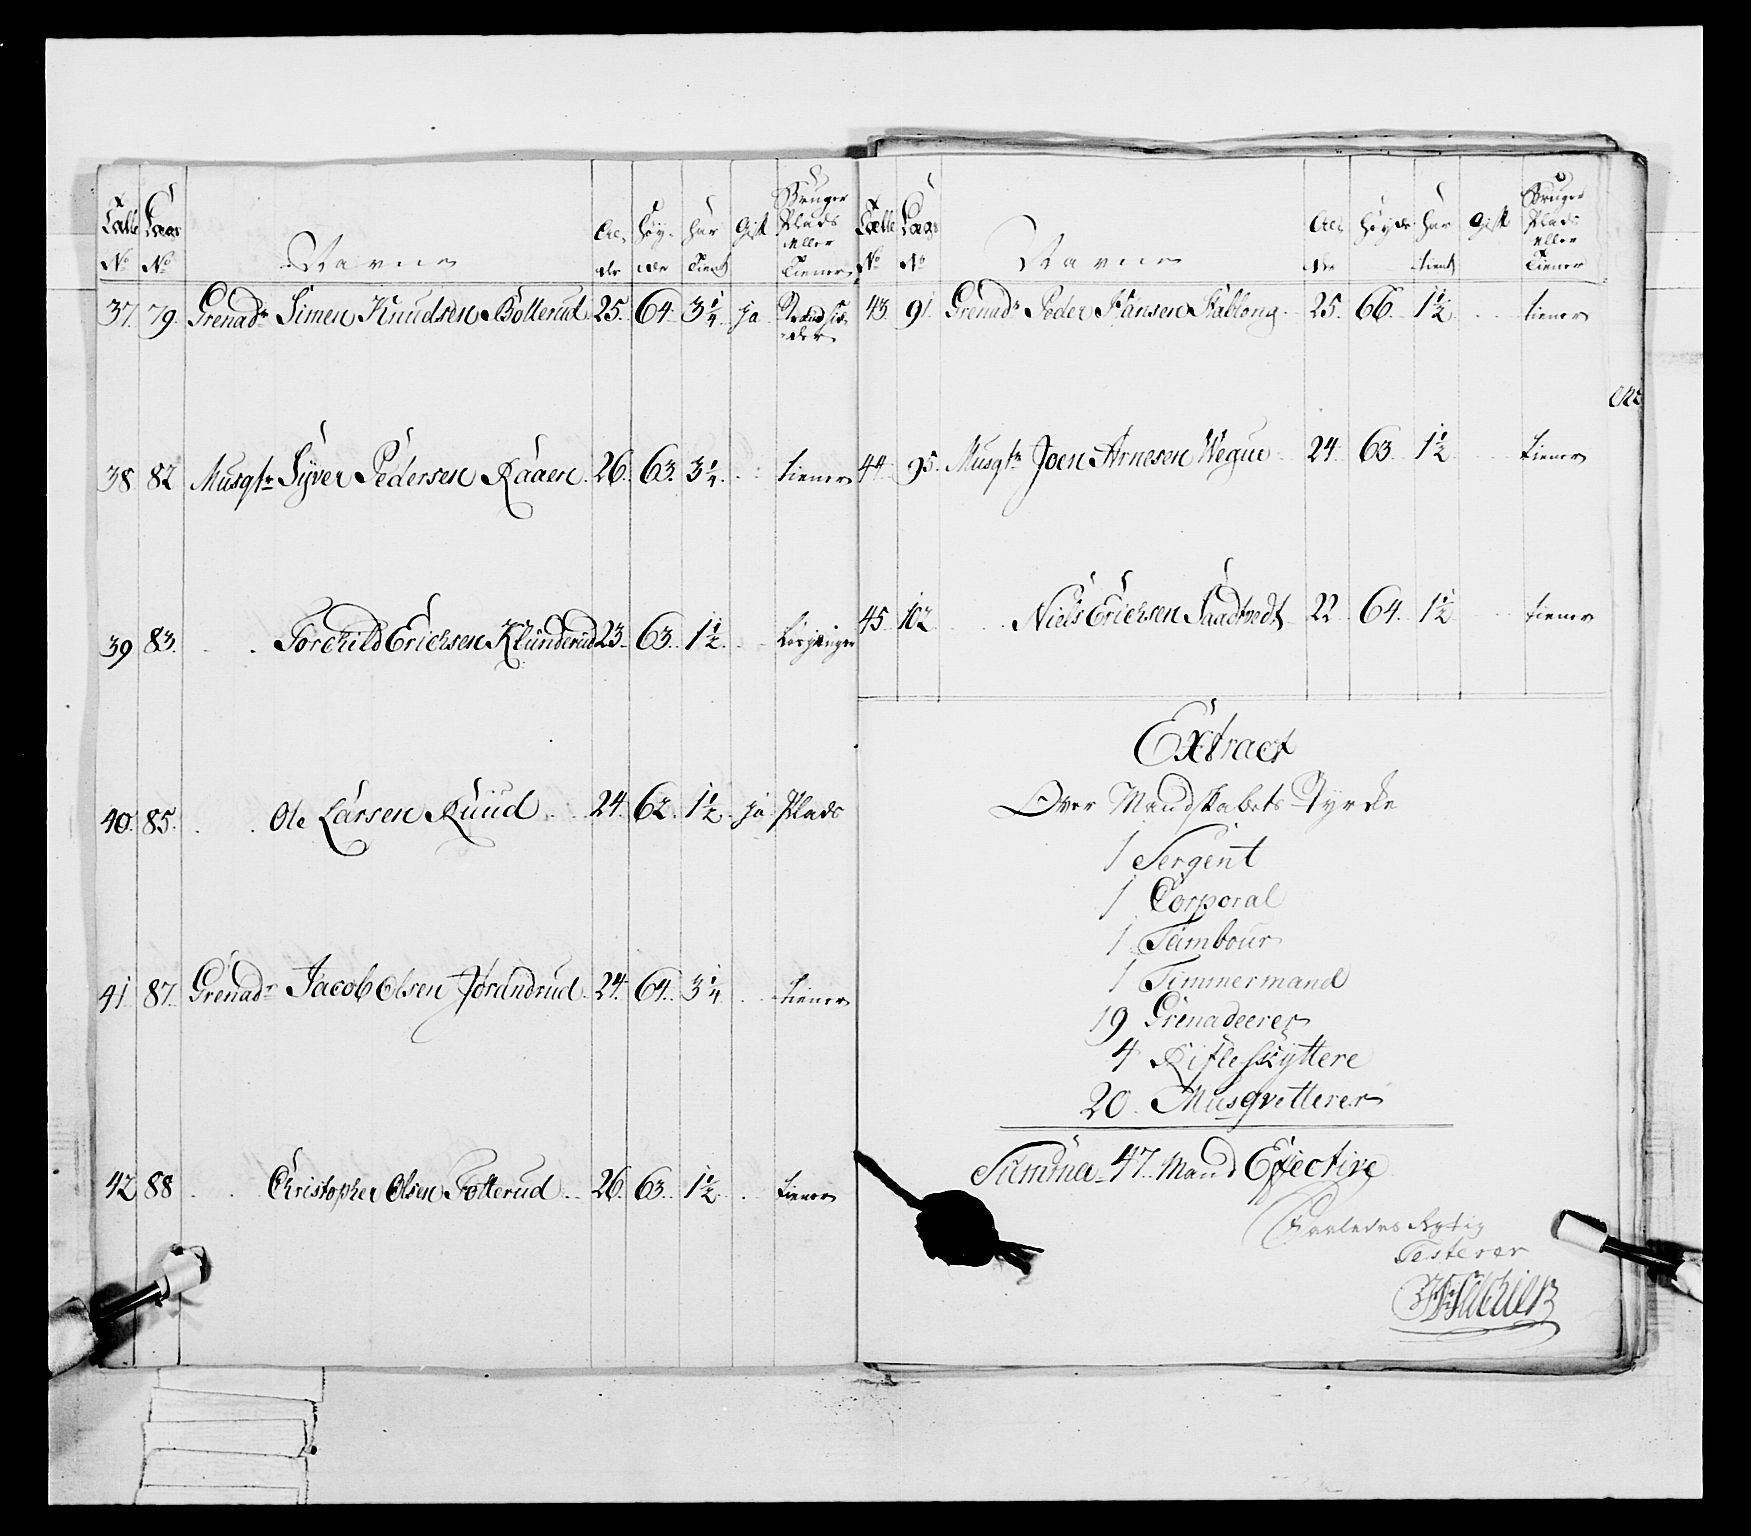 Tælle No Lægs No Navne Alder Høyde Har tient Gift Bruger Plads eller tiener
37. 79. Grenadr Simen Knudsen Bollerud 25. 64. 3 1/4 ja
38 82 Musqtr Syver Pedersen Raaen. 26. 63. 3 1/4 tiener
39 83. Torchild Erichsen Klunderud 23. 63. 1 1/2
40. 85. Ole Larsen Ruud 24. 62. 1 1/2 ja Plads
41 87. Grenadr Jacob Olsen Jørandrud 24. 64. 3 1/4 tiener
42 88 Christopher Olsen Totterud 26. 63. 1 1/2 tiener
Tælle No Lægs No Navne Alder Høyde Har tient Gift Bruger Plads eller tiener
43. 91. Grenadr Peder Hansen 25. 66. 1 1/2 tiener
44 95. Musqtr Joen Arnesen Wegue 24. 63 1 1/2 tiener
45 102 Niels Erichsen Saadtvedt 22 64. 1 1/2 tiener
Extract
Over Mandskabets Styrke
1 Sergent
1 Corporal
1 Tambour
1 Timmermand
19 Grenadeerer
4 Rifleskyttere
20. Musqvetterer
Summa 47. Mand Efective
Saaledes Rigtig
Testerer